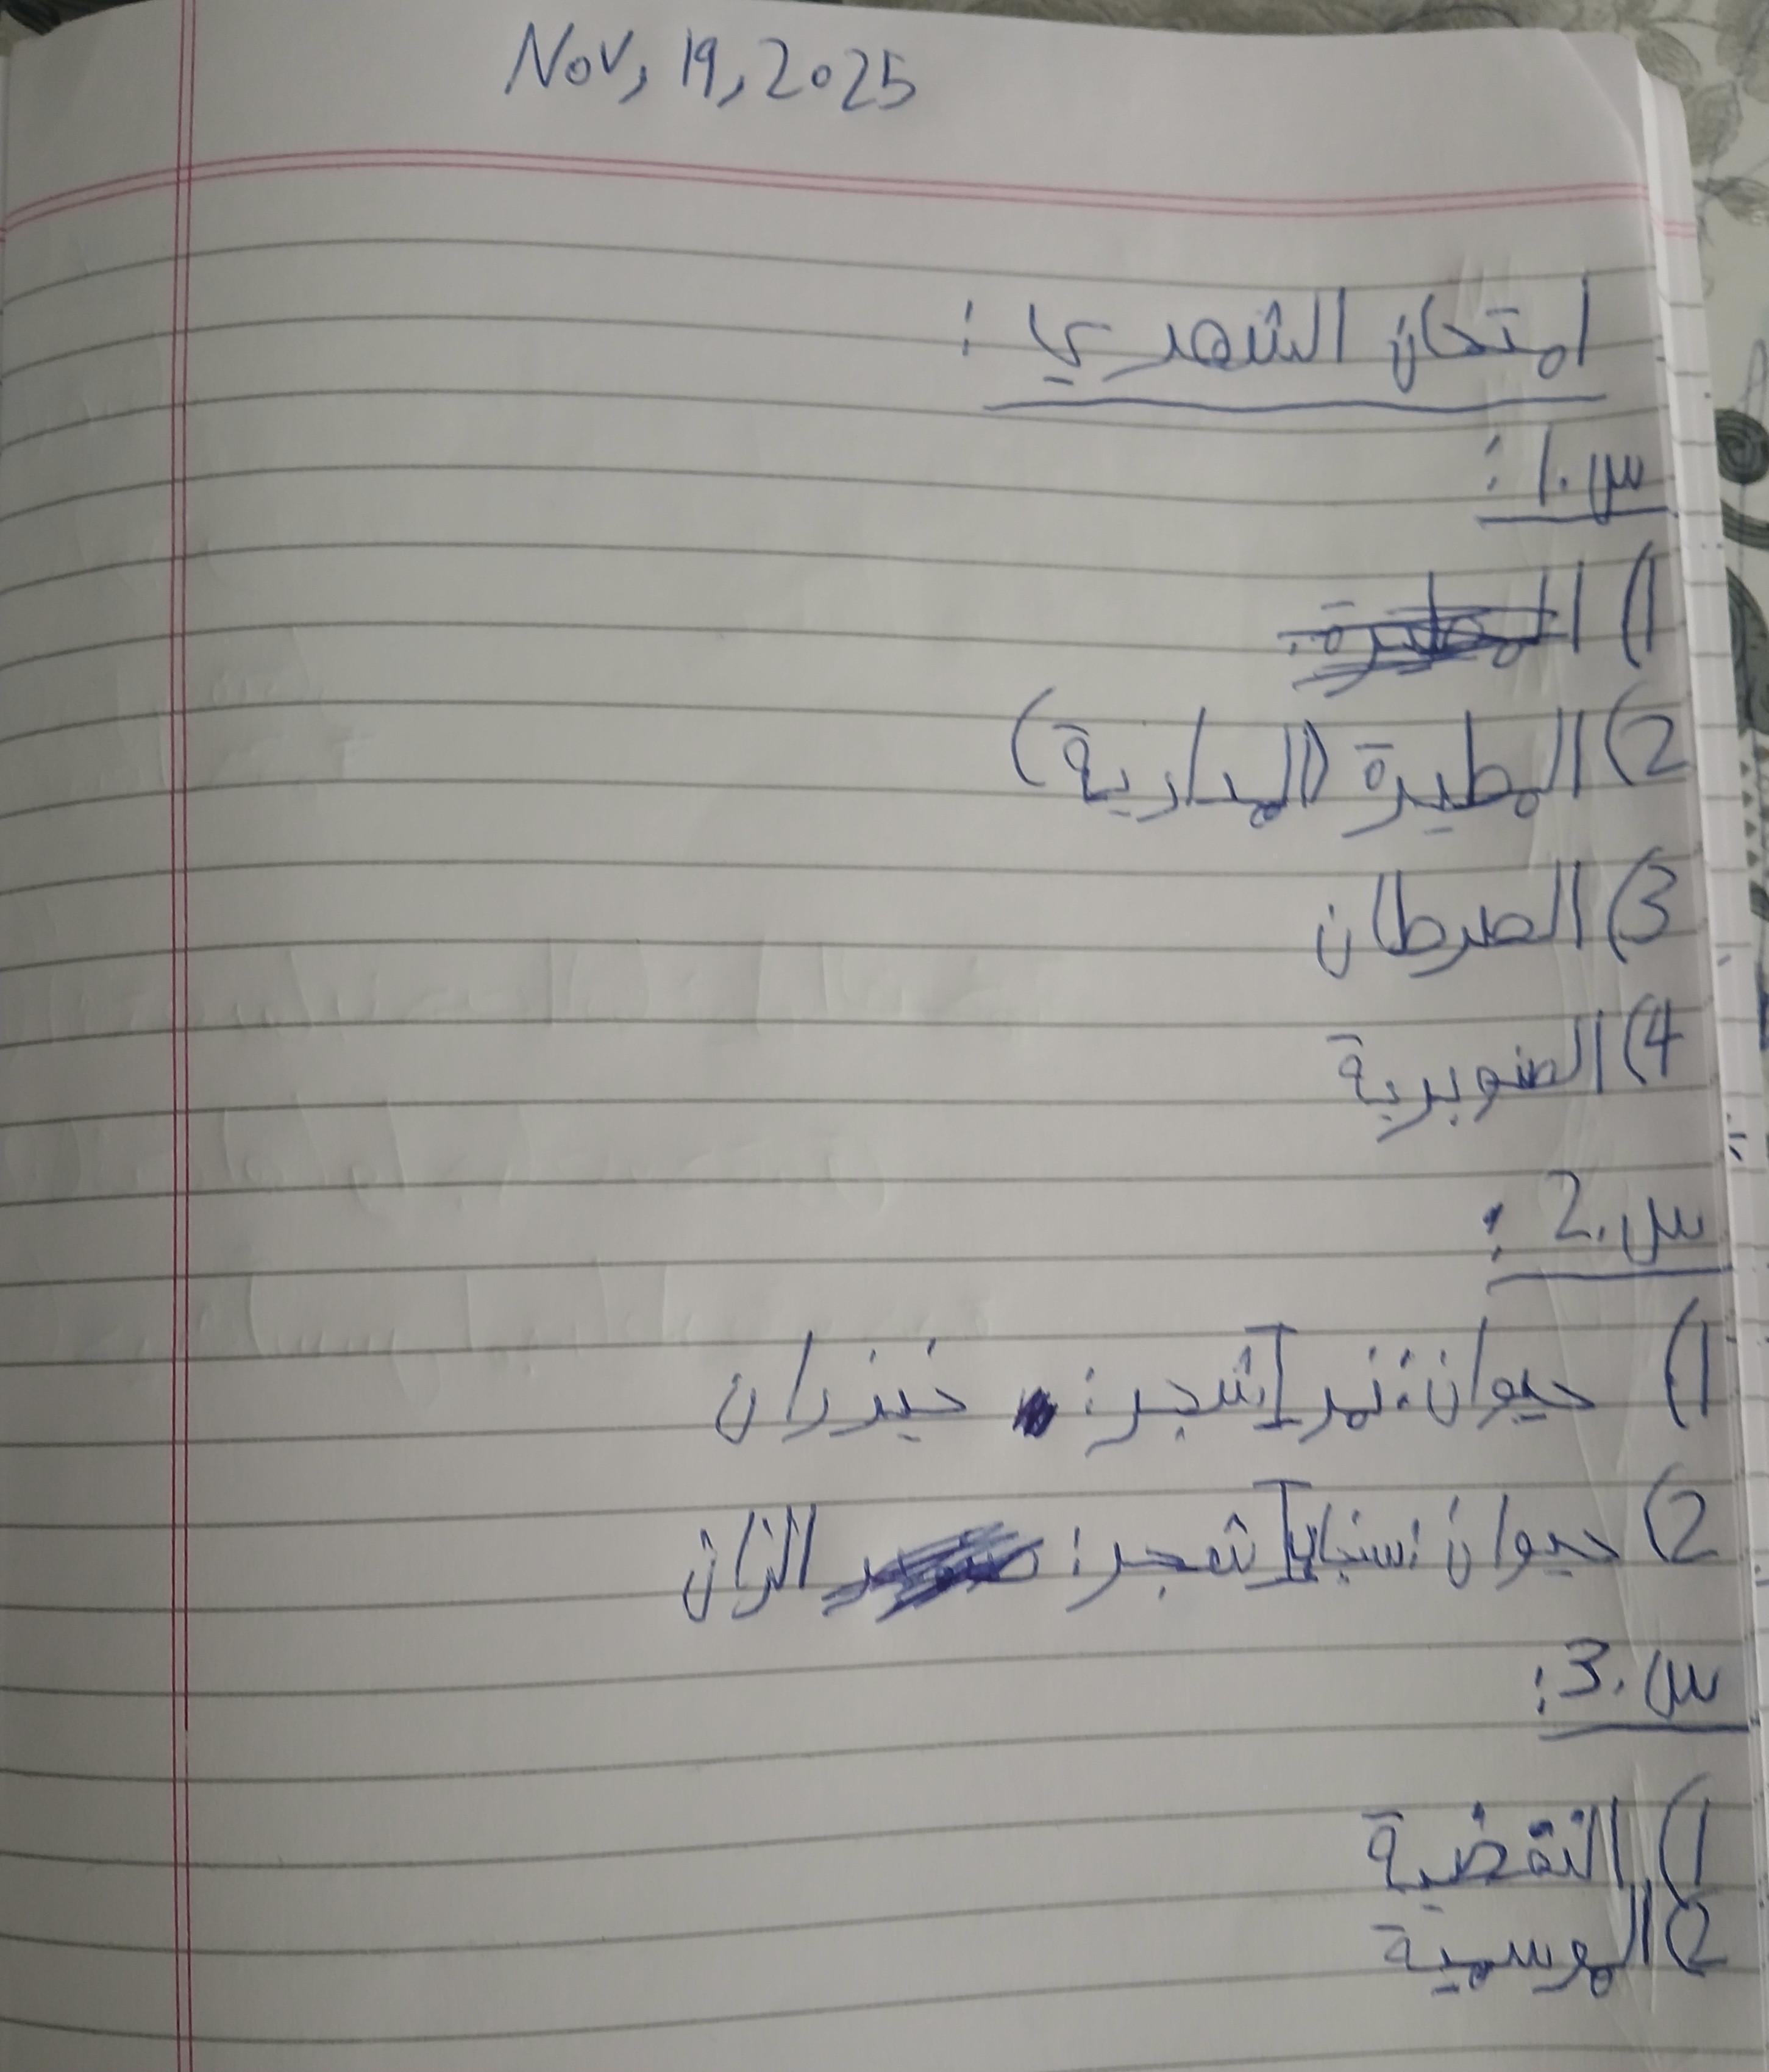 Nov, 19, 2025
امتحان الشهري :
س.1 :
(1
2) المطيرة (المدارية)
3) الصرطان
4) الصنوبرية
س.2 :
1) حيوان: نمر | شجر: خيزران
2) حيوان: سنجاب | شجر: الزان
س.3 :
1) النفضية
2) الموسمية